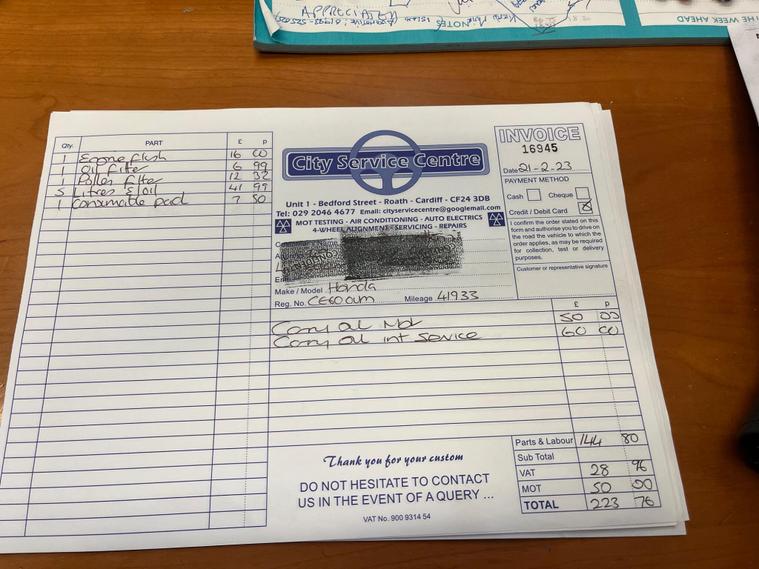 APPRECIATE
NOTES
THE WEEK AHEAD
Qty. PART £ P
1 Engine flush 16 00
1 Oil filter 6 99
1 Pollen filter 12 32
5 Litres oil 41 99
1 Consumable pad 7 50
City Service Centre
Unit 1 - Bedford Street - Roath - Cardiff - CF24 3DB
Tel: 029 2046 4677 Email: cityservicecentre@googlemail.com
MOT TESTING - AIR CONDITIONING - AUTO ELECTRICS
4-WHEEL ALIGNMENT - SERVICING - REPAIRS
Make / Model Honda
Reg. No. Mileage 41933
INVOICE
16945
Date 21-2-23
PAYMENT METHOD
Cash Cheque
Credit / Debit Card
I confirm the order stated on this
form and authorise you to drive on
the road the vehicle to which the
order applies, as may be required
for collection, test or delivery
purposes.
Customer or representative signature
£ P
Carry out Mot 50 00
Carry out int Service 60 00
Thank you for your custom
DO NOT HESITATE TO CONTACT
US IN THE EVENT OF A QUERY ...
VAT No. 900 9314 54
Parts & Labour 144 80
Sub Total
VAT 28 96
MOT 50 00
TOTAL 223 76